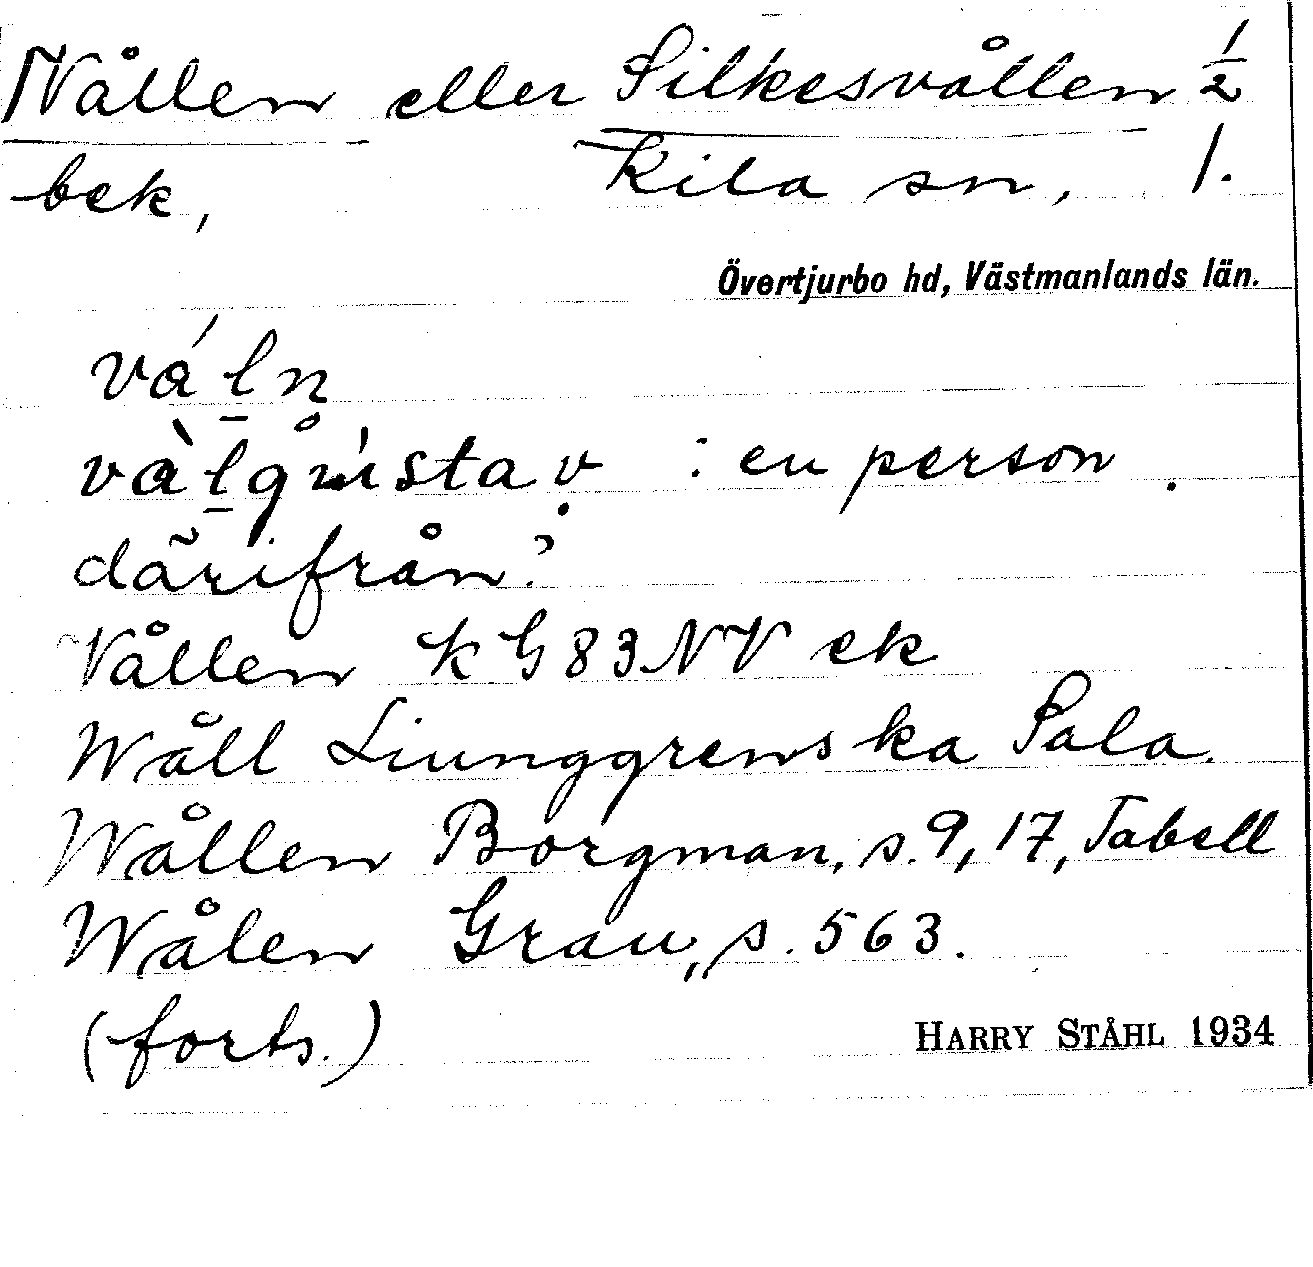 Vållen eller Silkesvållen 1/2
bek, Kila sn, 1.
Övertjurbo hd, Västmanlands län.
vǻln
vå̀lgústav : en person
därifrån.
Vållen KG 83 NV ek
Wåll Liunggrenska Sala.
Wållen Borgman, s. 9, 17, Tabell
Wålen Grau, s. 563.
(forts.)
HARRY STÅHL 1934